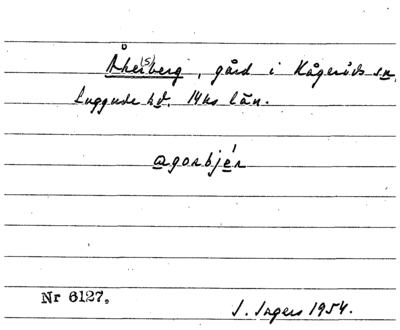 Åke(s)berg, gård i Kågeröds sn,
Luggude hd. Mhs län.
agarbjér
Nr 6127.
I. Ingers 1954.